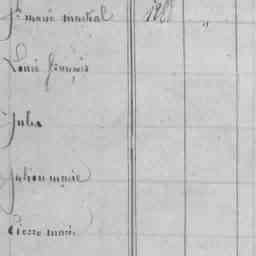 Jn marie martial 1881 "
Louis François
Jules
Julien marie
Pierre marie